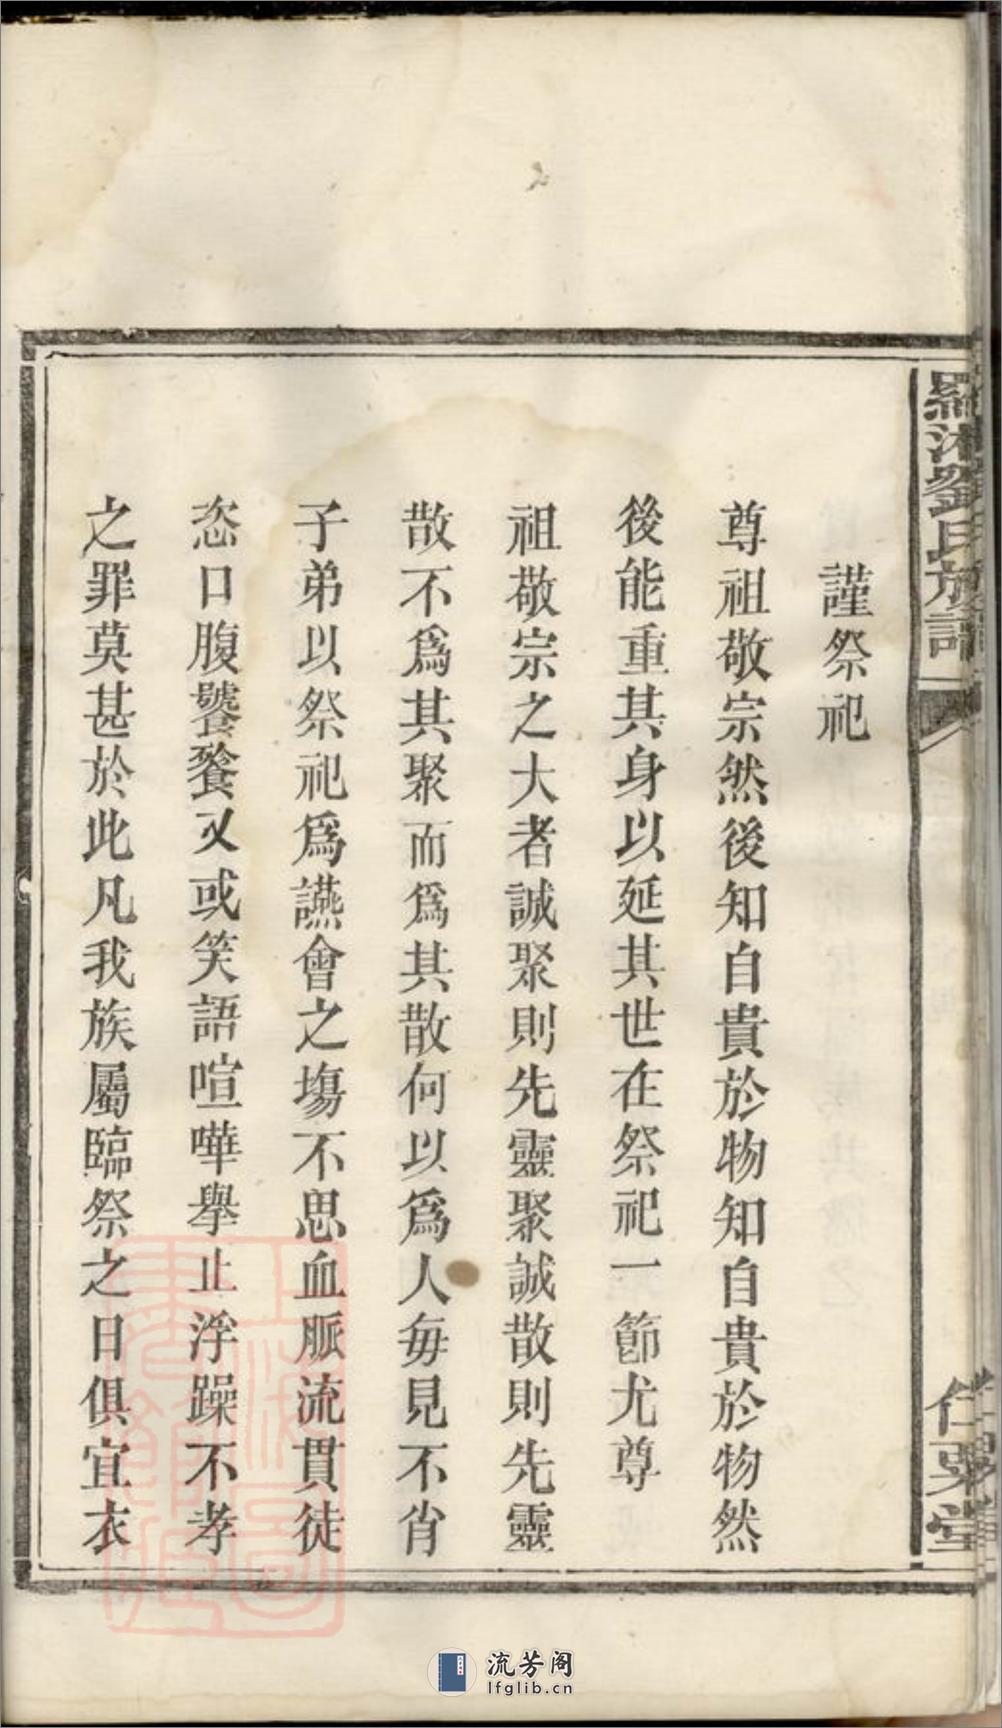 羅湘劉氏族譜
仁翠堂
謹祭祀
尊祖敬宗然後知自貴於物知自貴於物然
後能重其身以延其世在祭祀一節尤尊
祖敬宗之大者誠聚則先靈聚誠散則先靈
散不爲其聚而爲其散何以爲人每見不肖
子弟以祭祀爲讌會之塲不思血脈流貫徒
恣口腹饕餮又或笑語喧嘩舉止浮躁不孝
之罪莫甚於此凡我族屬臨祭之日俱宜衣
流芳阁
lfglib.cn